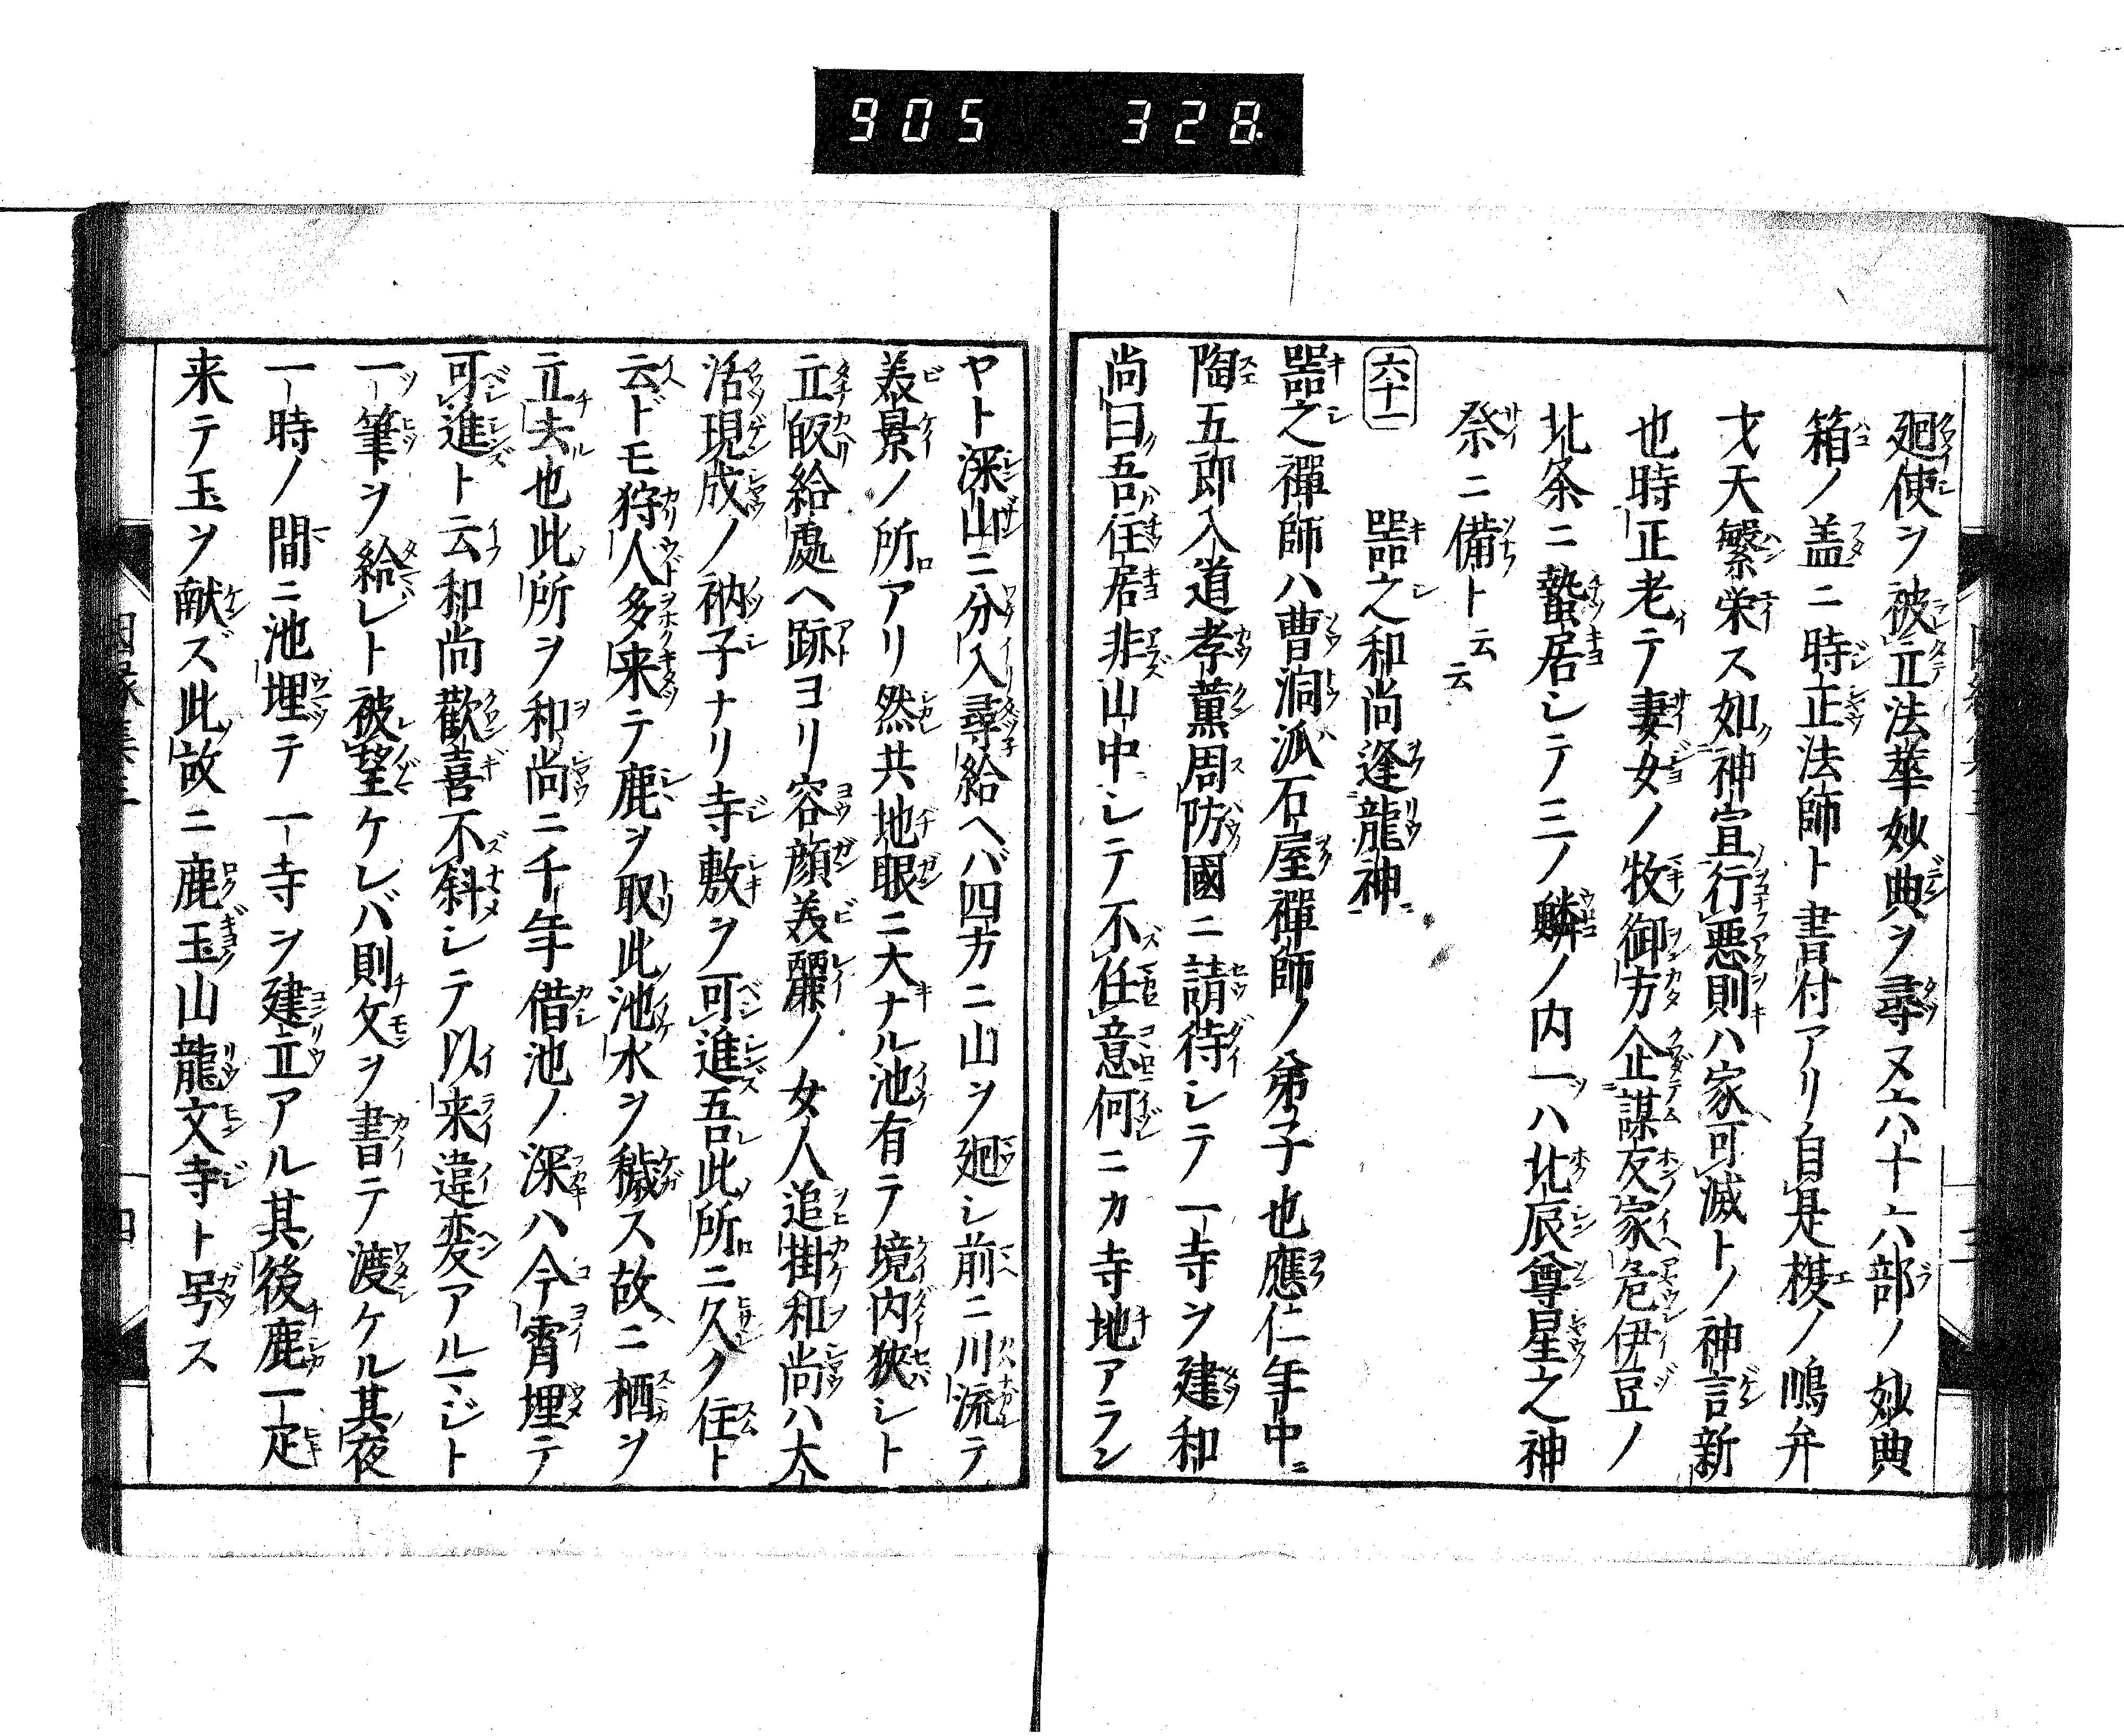 905 328
廻使ヲ被立法華妙典ヲ尋ヌ六十六部ノ妙典
箱ノ盖ニ時正法師ト書付アリ自是榎ノ嶋弁
才天繁栄ス如神宣行悪則ハ家可滅トノ神言新
也時正老テ妻女ノ牧御方企謀友家危伊豆ノ
北条ニ蟄居シテ三ノ鱗ノ内一ハ北辰尊星之神
祭ニ備ト云云
六十一 噐之和尚逢龍神
噐之禪師ハ曹洞派石屋禪師ノ弟子也應仁年中ニ
陶五郎入道孝薫周防國ニ請待シテ一寺ヲ建和
尚曰吾住居非山中シテ不任意何ニカ寺地アラン
ヤト深山ニ分入尋給ヘバ四方ニ山ヲ廻シ前ニ川流テ
美景ノ所アリ然共地眼ニ大ナル池有テ境内狹シト
立皈給處ヘ跡ヨリ容顔美麗ノ女人追掛和尚ハ大
活現成ノ衲子ナリ寺敷ヲ可進吾此所ニ久ク住ト
云ドモ狩人多来テ鹿ヲ取此池水ヲ穢ス故ニ栖ヲ
立去也此所ヲ和尚ニ千年借池ノ深ハ今霄埋テ
可進ト云和尚歡喜不斜シテ以来違変アルマジト
一筆ヲ給レト被望ケレバ則文ヲ書テ渡ケル其夜
一時ノ間ニ池埋テ一寺ヲ建立アル其後鹿一疋
来テ玉ヲ献ズ此故ニ鹿玉山龍文寺ト号ス
因縁集三
四